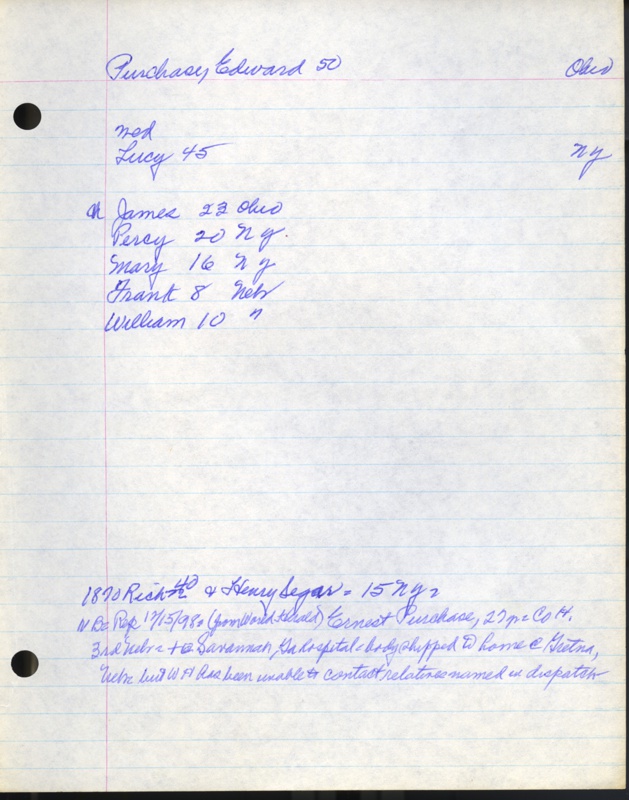 Purchase, Edward 50 Ohio
Lucy 45 NY
James 22 Ohio
Percy 20 NY.
Mary 16 NY
Frank 8 Nebr
William 10 "
1870 Rich 40 & Henry Segar = 15 NY
Rep 12/15/98 = (from World-Herald) Ernest Purchase, 27 yr = Co H.
3rd Nebr = Savannah, Ga hospital = body shipped to home @ Gretna,
Nebr but W H has been unable to contact relatives named in dispatch